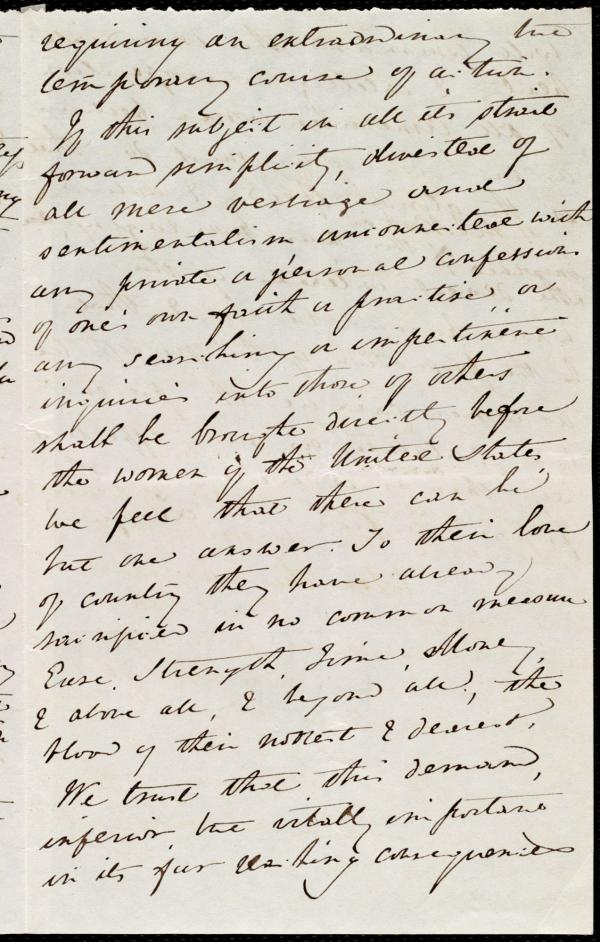 requiring an extraordinary but
temporary course of action.
If this subject in all its strait
forward simplicity, divested of
all mere verbiage and
sentimentalism unconnected with
any private or personal confessions
of one's own faith or practise, or
any searching or impertinent
inquiries into those of others
shall be brought directly before
the women of the United States,
we feel that there can be
but one answer. To their love
of country they have already
sacrificed in no common measure
Ease, Strength, Time, Money,
& above all, & beyond all, the
blood of their noblest & dearest.
We trust that this demand,
inferior but vitally important
in its far reaching consequences